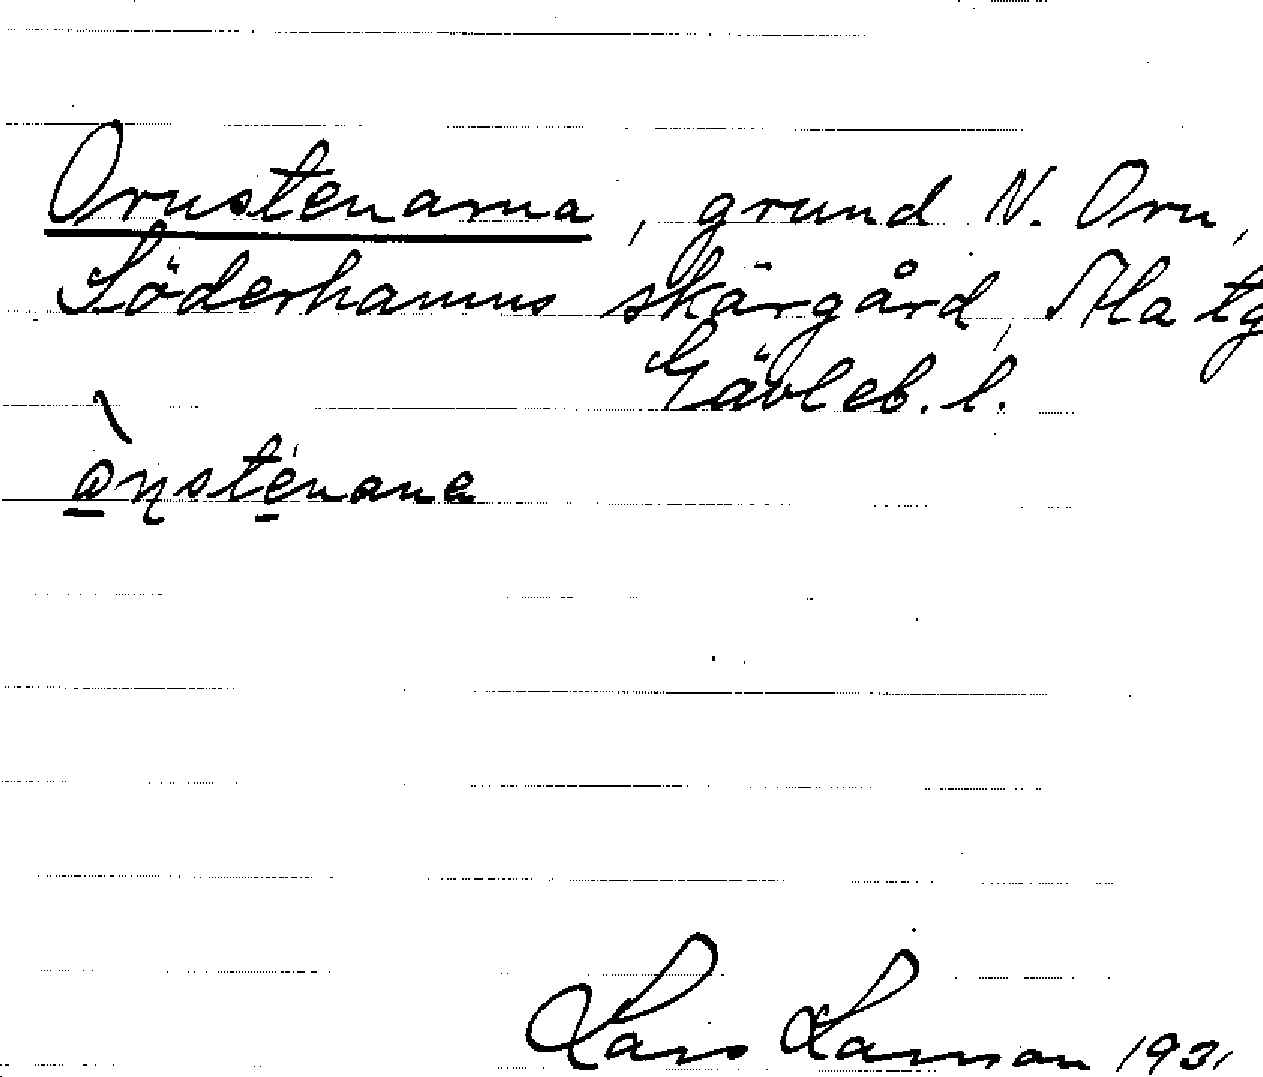 Orustenarna, grund N. Oru,
Söderhamns skärgård, Ala tg
Gävleb. l.
Lars Larsson 193